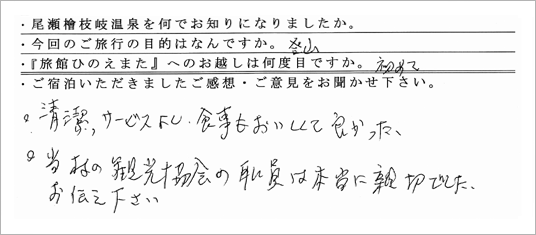 ・尾瀬檜枝岐温泉を何でお知りになりましたか。
・今回のご旅行の目的はなんですか。登山
・『旅館ひのえまた』へのお越しは何度目ですか。初めて
・ご宿泊いただきましたご感想・ご意見をお聞かせ下さい。
。清潔,サービスよし.食事もおいしくて良かった、
。当村の観光協会の職員は本当に親切でした、
お伝え下さい